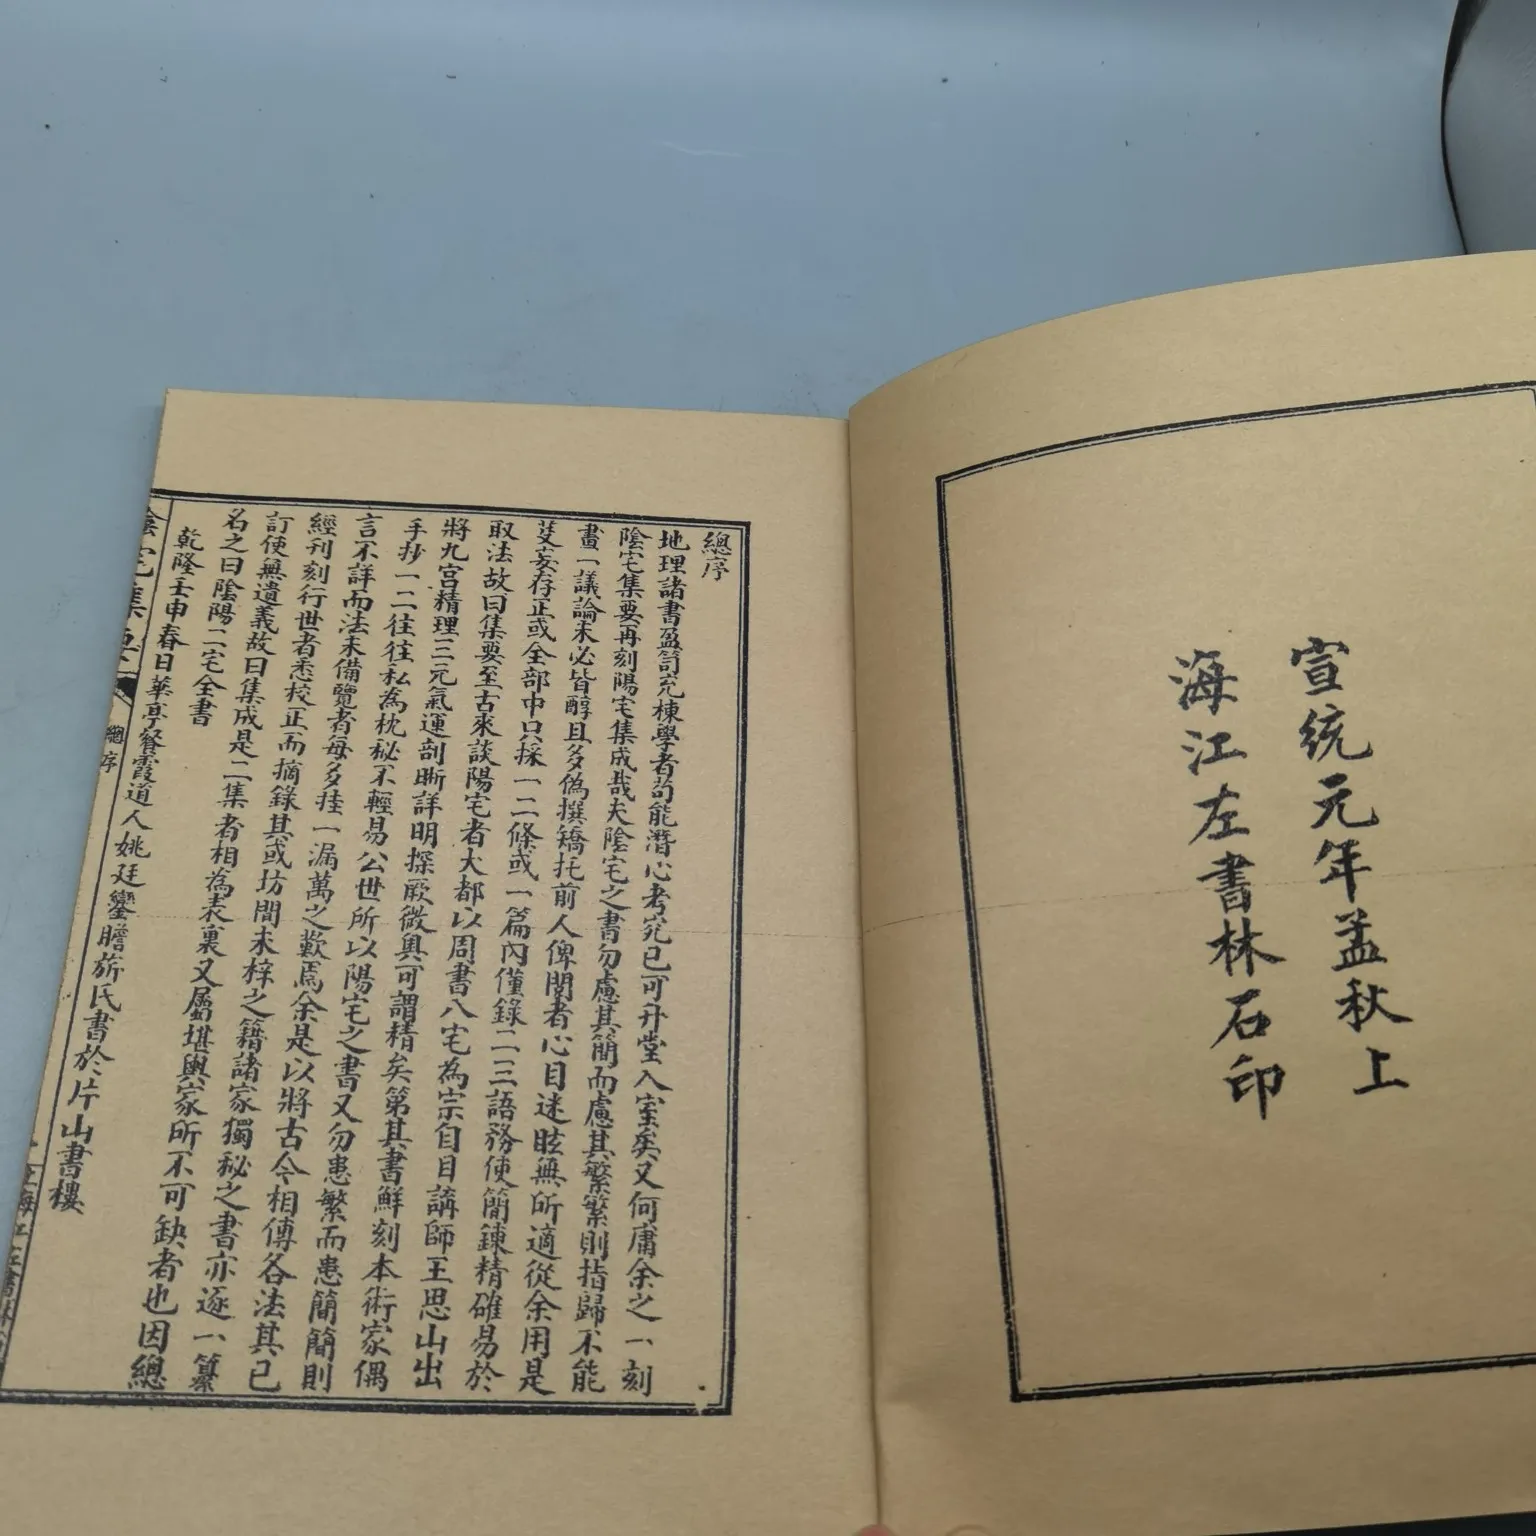 宣統元年孟秋上
海江左書林石印
總序
地理諸書盈笥充棟學者苟能潛心考究已可升堂入室矣又何庸余之一刻
陰宅集要再刻陽宅集成哉夫陰宅之書勿慮其簡而慮其繁繁則指歸不能
畫一議論未必皆醇且多偽撰矯托前人俾閱者心目迷眩無所適從余用是
芟妄存正或全部中只採一二條或一篇內僅錄二三語務使簡鍊精確易於
取法故曰集要至古來談陽宅者大都以周書八宅為宗自目講師王思山出
將九宮精理三元氣運剖晰詳明探厥微奧可謂精矣第其書鮮刻本術家偶
手抄一二往往私為枕秘不輕易公世所以陽宅之書又勿患繁而患簡簡則
言不詳而法未備覽者每多挂一漏萬之歎焉余是以將古今相傳各法其已
經刊刻行世者悉校正而摘錄其或坊間未梓之籍諸家獨秘之書亦逐一纂
訂使無遺義故曰集成是二集者相為表裏又屬堪輿家所不可缺者也因總
名之曰陰陽二宅全書
乾隆壬申春日華亭餐霞道人姚廷鑾瞻旂氏書於片山書樓
陰宅集要 總序 上海江左書林